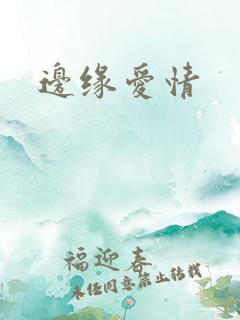 邊缘愛情
福迎春
未经同意禁止转载